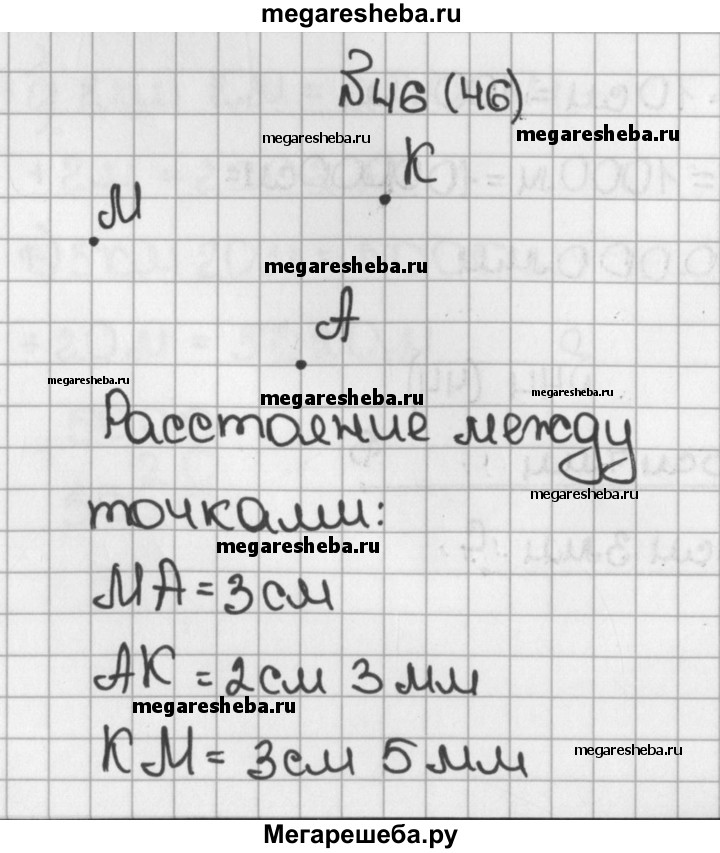 megaresheba.ru
№46 (46)
megaresheba.ru
megaresheba.ru
К
М
megaresheba.ru
А
megaresheba.ru
megaresheba.ru
megaresheba.ru
Расстояние между
megaresheba.ru
точками:
megaresheba.ru
МА = 3 см
АК = 2 см 3 мм
megaresheba.ru
КМ = 3 см 5 мм
megaresheba.ru
Мегарешеба.ру